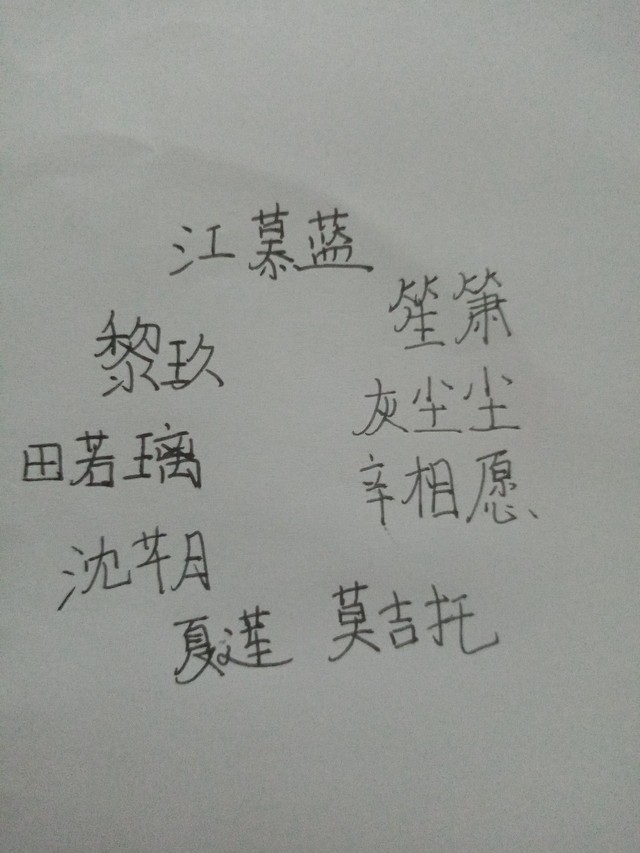 江慕蓝
笙箫
黎玖
灰尘尘
田若璃
辛相愿
沈芊月
夏莲
莫吉托